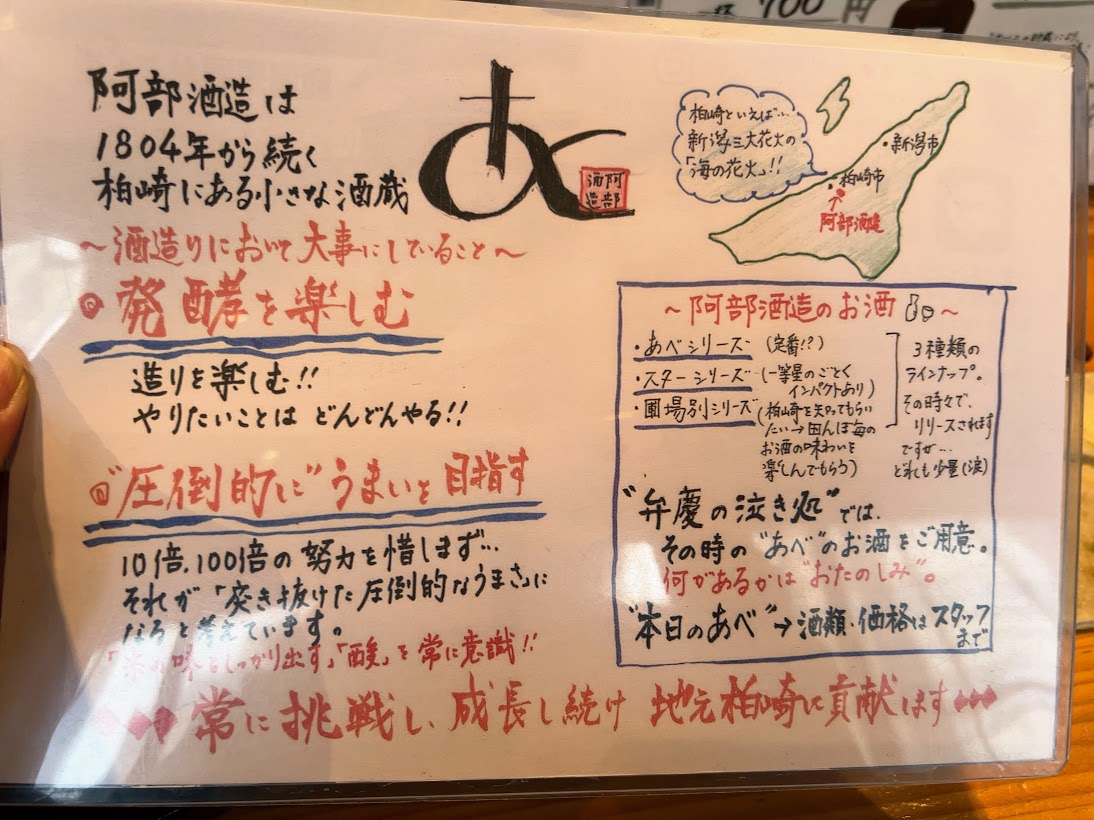 阿部酒造は
1804年から続く
柏崎にある小さな酒蔵
あ
阿部
酒造
柏崎といえば…
新潟三大花火の
「海の花火」!!
・新潟市
・柏崎市
阿部酒造
～酒造りにおいて大事にしていること～
◎発酵を楽しむ
造りを楽しむ!!
やりたいことは どんどんやる!!
◎"圧倒的に"うまいを目指す
10倍、100倍の努力を惜しまず…
それが「突き抜けた圧倒的なうまさ」に
なると考えています。
「米の味をしっかり出す」「酸」を常に意識!!
～阿部酒造のお酒～
・あべシリーズ (定番!?)
・スターシリーズ (一等星のごとく
インパクトあり)
・圃場別シリーズ (柏崎を知ってもらい
たい→田んぼ毎の
お酒の味わいを
楽しんでもらう)
3種類の
ラインナップ。
その時々で、
リリースされます
ですが…
どれも少量(涙)
"弁慶の泣き処"では、
その時の"あべ"のお酒をご用意。
何があるかは"おたのしみ"。
"本日のあべ"→酒類・価格はスタッフ
まで
常に挑戦し、成長し続け 地元柏崎に貢献します
700円